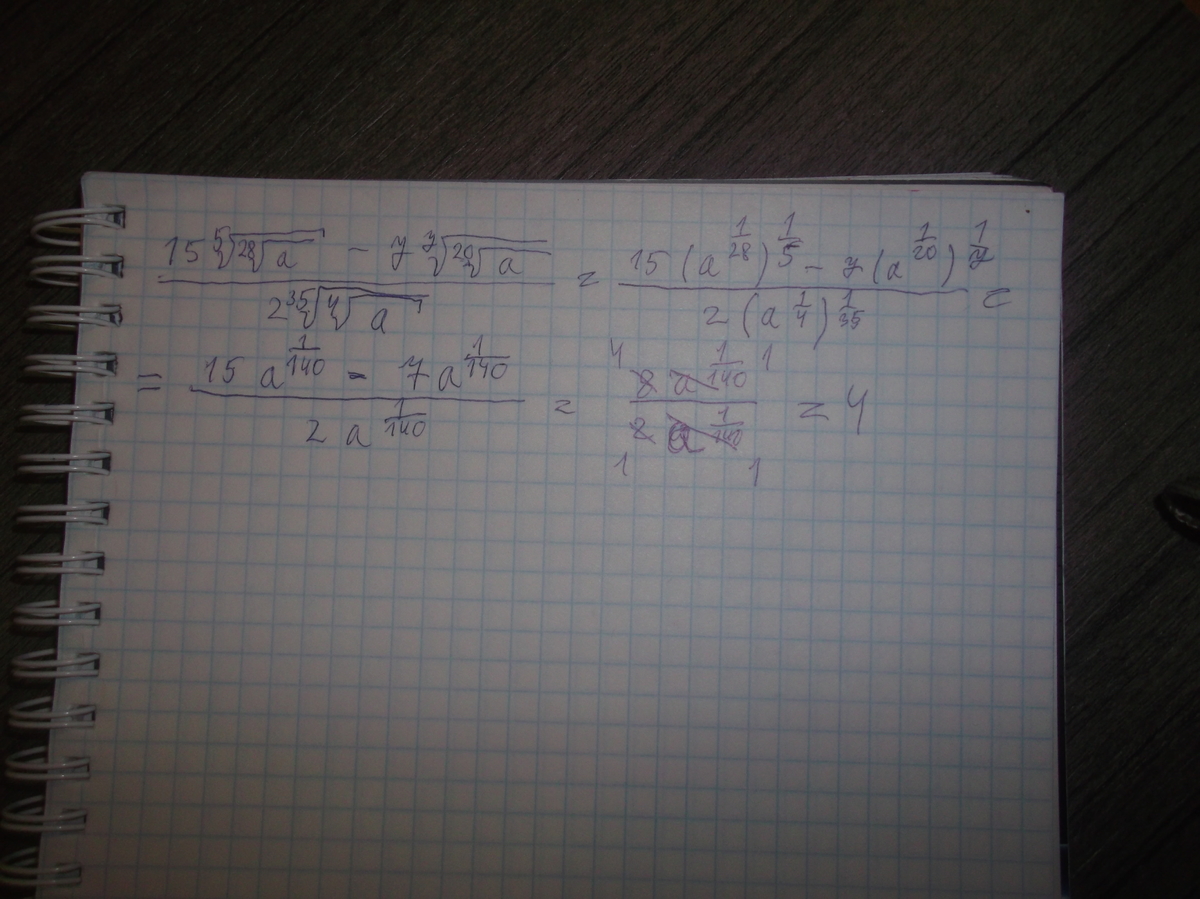 \frac{15\sqrt[5]{\sqrt[28]{a}} - 7\sqrt[7]{\sqrt[20]{a}}}{2\sqrt[35]{\sqrt[4]{a}}} = \frac{15(a^{\frac{1}{28}})^{\frac{1}{5}} - 7(a^{\frac{1}{20}})^{\frac{1}{7}}}{2(a^{\frac{1}{4}})^{\frac{1}{35}}} =
= \frac{15a^{\frac{1}{140}} - 7a^{\frac{1}{140}}}{2a^{\frac{1}{140}}} = \frac{\overset{4}{\cancel{8}}\overset{1}{\cancel{a^{\frac{1}{140}}}}}{\underset{1}{\cancel{2}}\underset{1}{\cancel{a^{\frac{1}{140}}}}} = 4